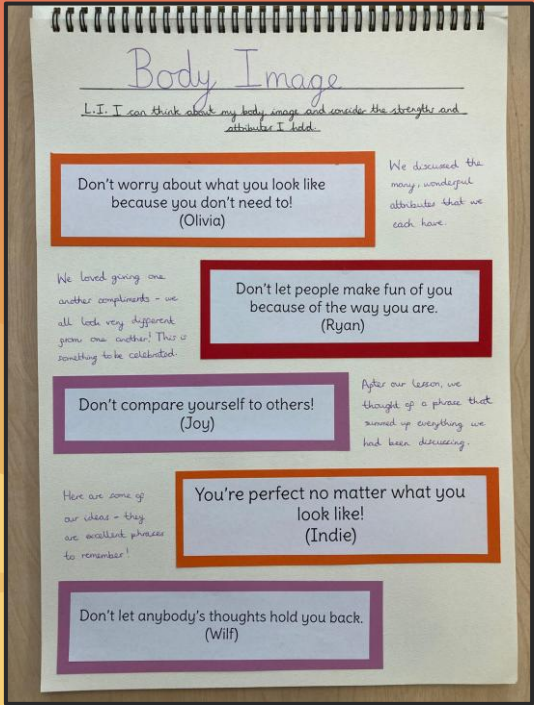 Body Image
L.I. I can think about my body image and consider the strengths and
attributes I hold.
Don't worry about what you look like
because you don't need to!
(Olivia)
We discussed the
many, wonderful
attributes that we
each have.
We loved giving one
another compliments - we
all look very different
from one another! This is
something to be celebrated.
Don't let people make fun of you
because of the way you are.
(Ryan)
Don't compare yourself to others!
(Joy)
After our lesson, we
thought of a phrase that
summed up everything we
had been discussing.
Here are some of
our ideas - they
are excellent phrases
to remember!
You're perfect no matter what you
look like!
(Indie)
Don't let anybody's thoughts hold you back.
(Wilf)